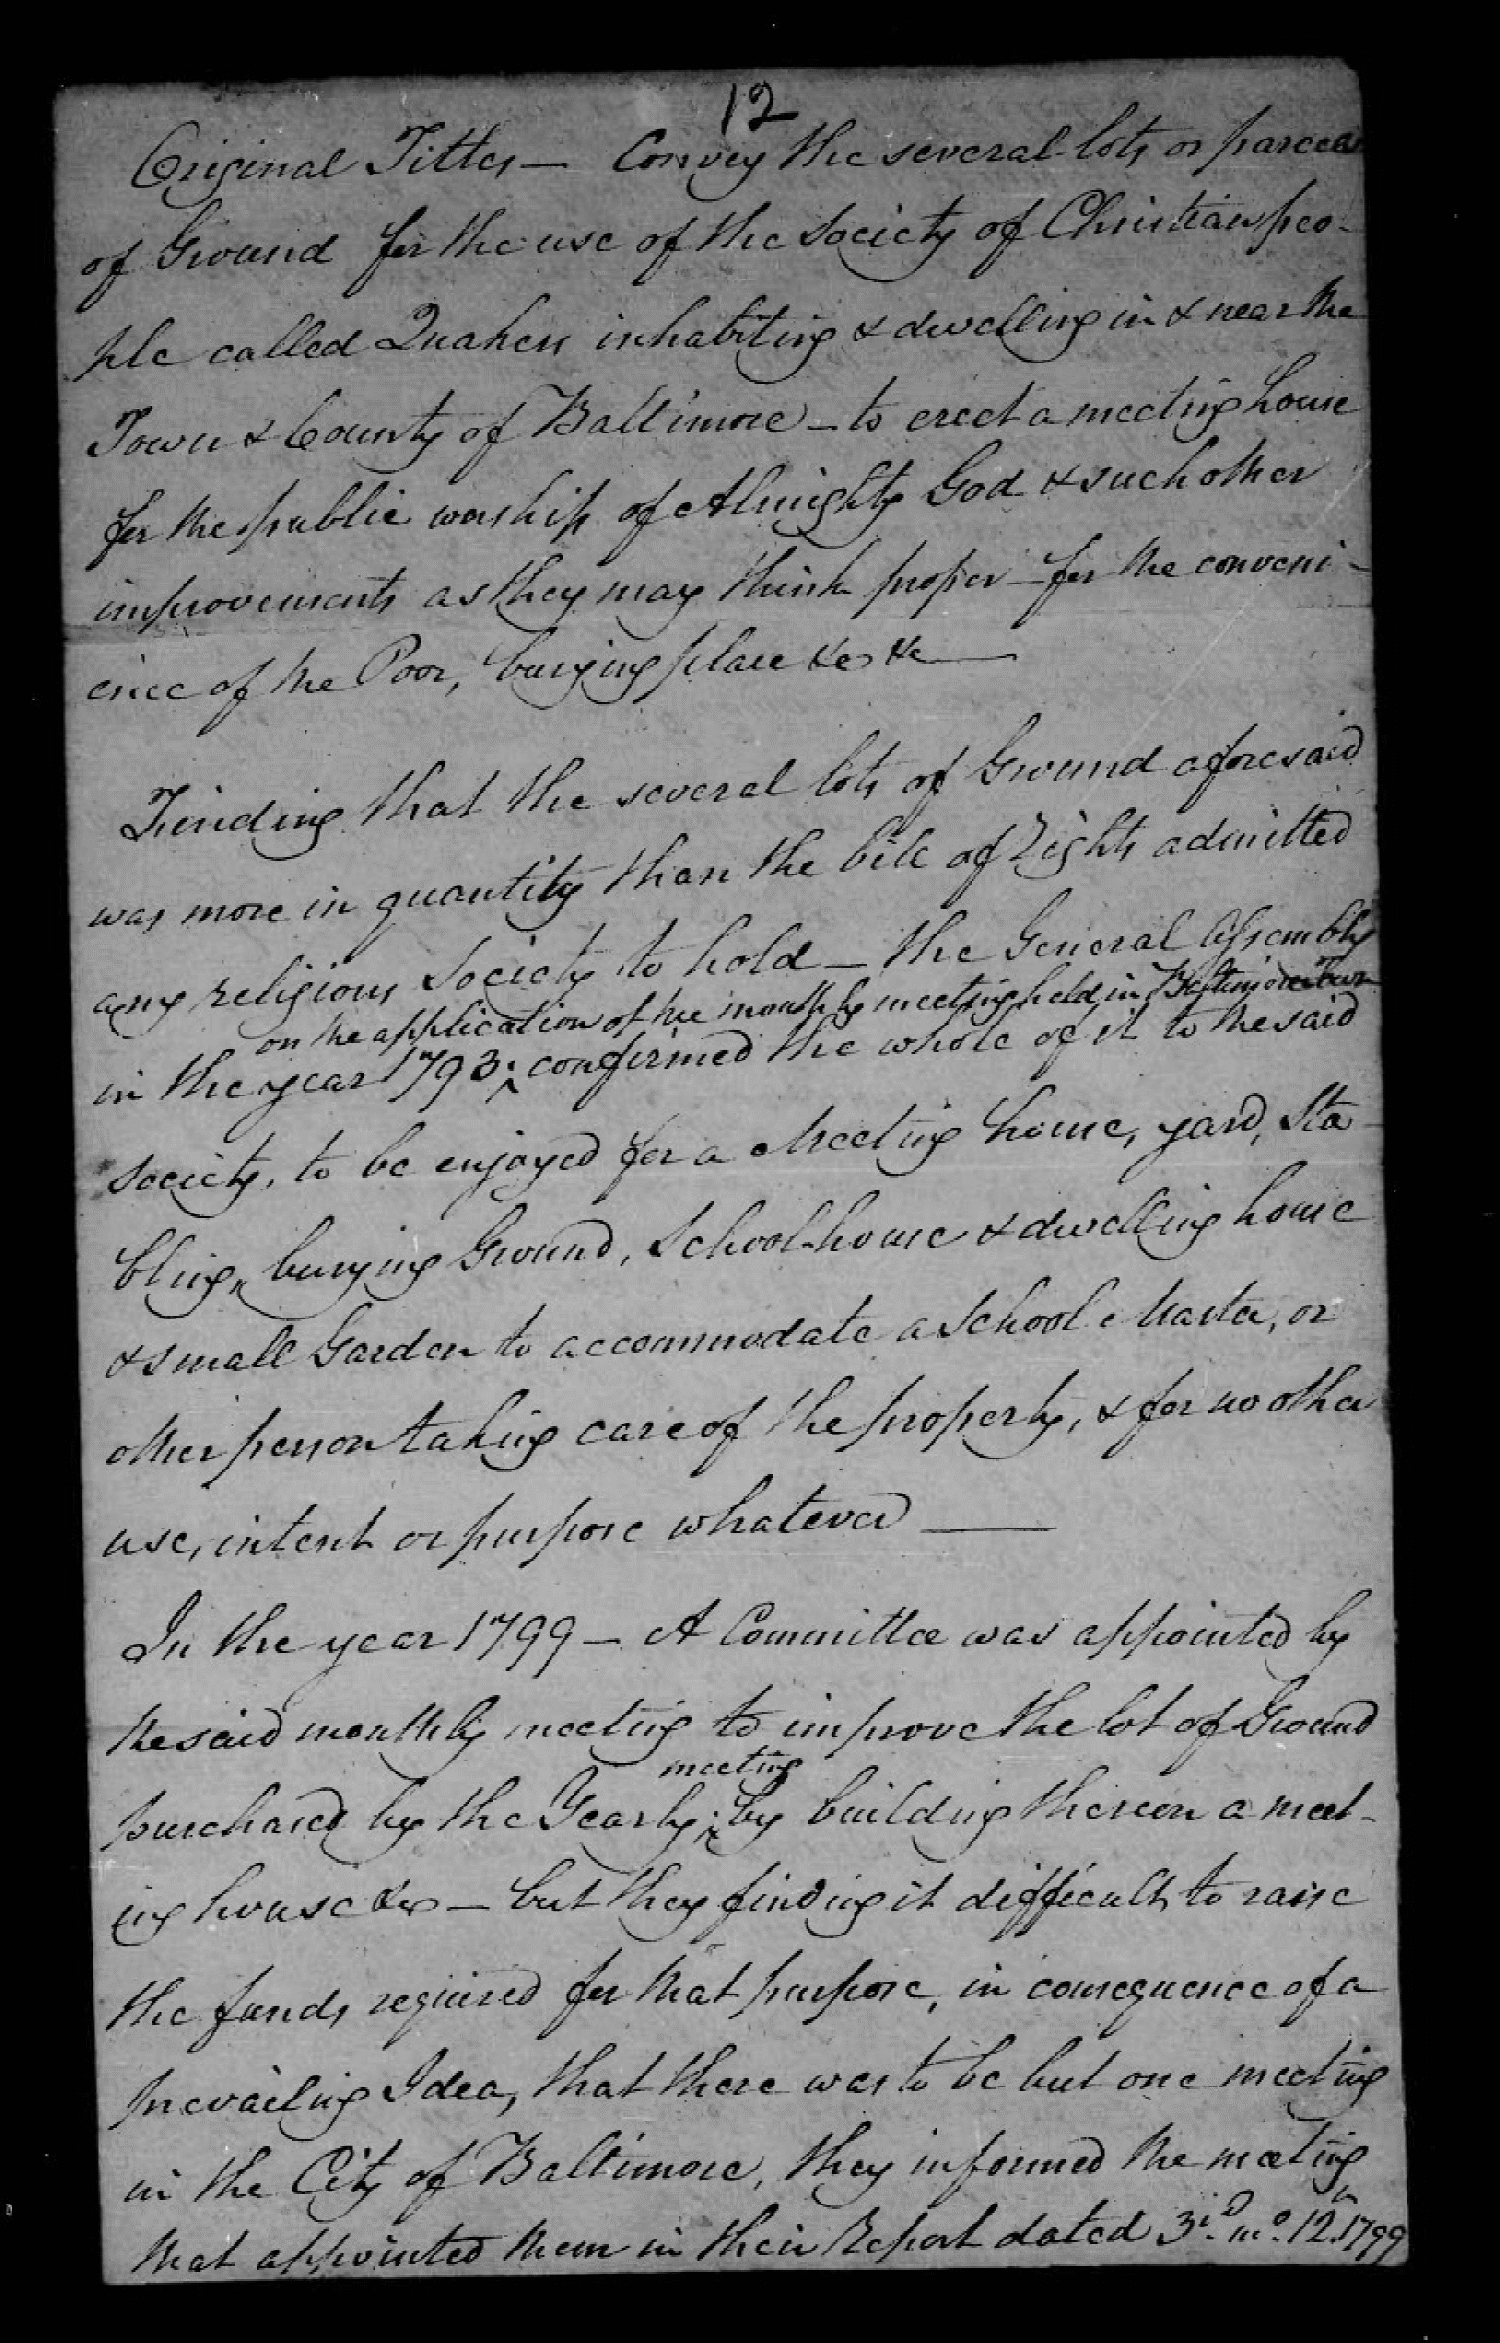 12
Original Titles — Convey the several lots or parcels
of Ground for the use of the Society of Christian peo-
ple called Quakers inhabiting & dwelling in & near the
Town & County of Baltimore — to erect a meeting house
for the public worship of Almighty God & such other
improvements as they may think proper — for the conveni-
ence of the Poor, burying place &c &c —
Finding that the several lots of Ground aforesaid
was more in quantity than the bill of Rights admitted
any religious Society to hold — the General Assembly
on the application of the monthly meeting held in Baltimore Town
in the year 1793 ^ confirmed the whole of it to the said
Society, to be enjoyed for a Meeting house, yard, Sta-
bling, burying Ground, School-house & dwelling house
& small Garden to accommodate a School Master, or
other person taking care of the property, & for no other
use, intent or purpose whatever —
In the year 1799 — A Committee was appointed by
the said monthly meeting to improve the lot of Ground
meeting
purchased by the Yearly ^ by building thereon a meet-
ing house &c — but they finding it difficult to raise
the funds required for that purpose, in consequence of a
prevailing Idea, that there was to be but one meeting
in the City of Baltimore, they informed the meeting
that appointed them in their Report dated 3rd mo. 12th 1799